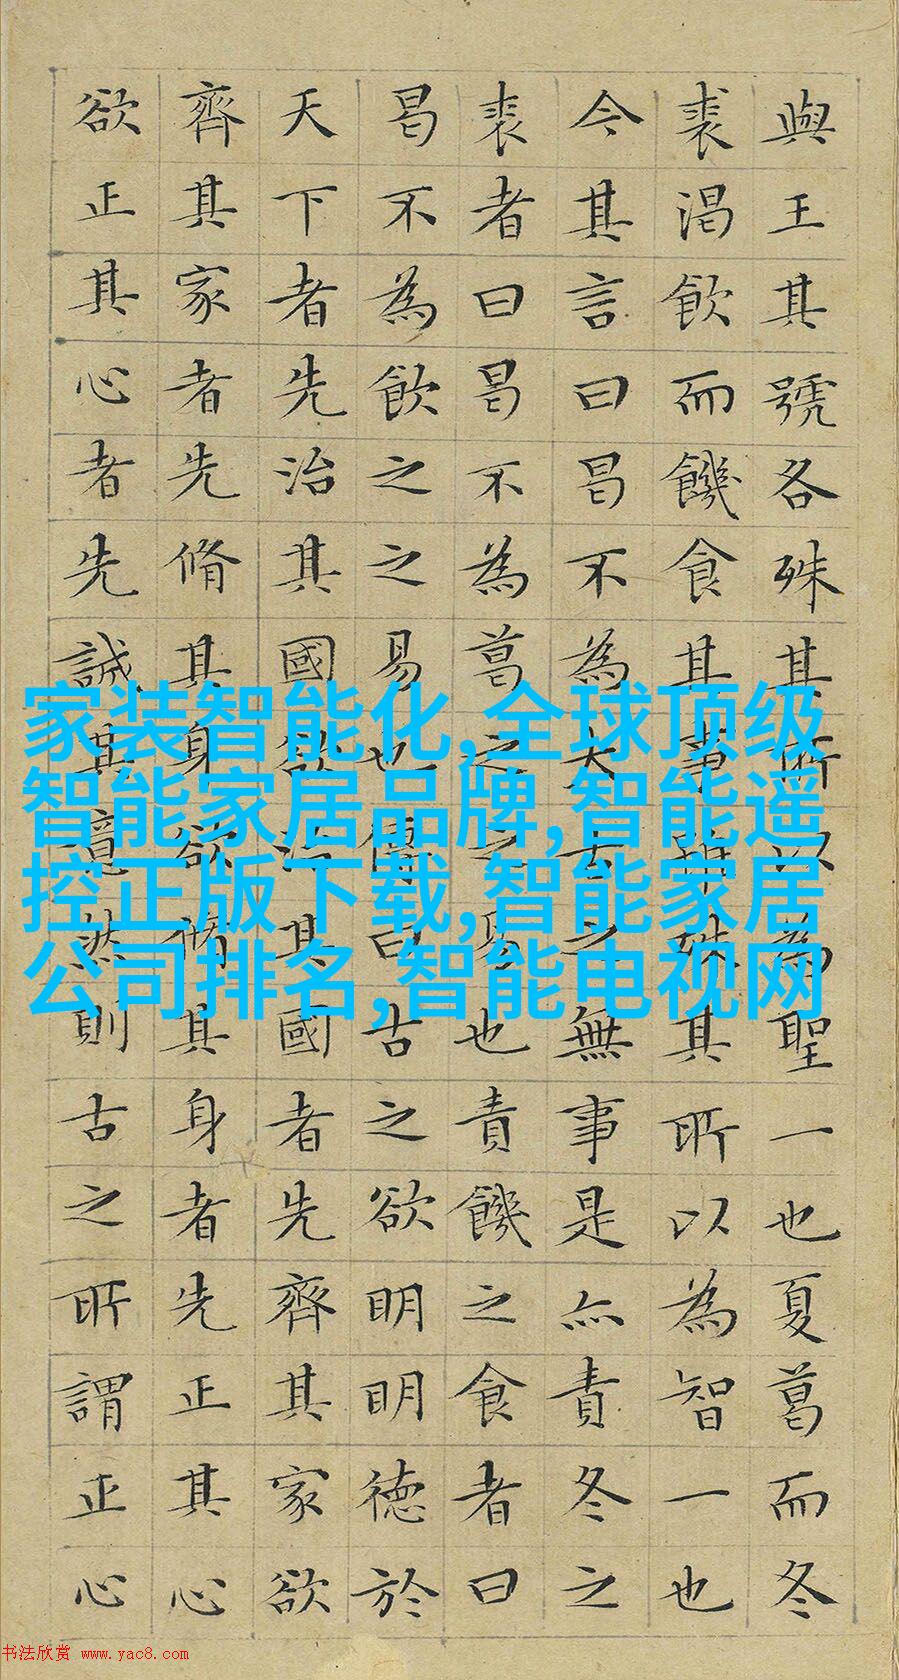 與王其號各殊其所以為聖一也夏葛而冬
裘渴飲而饑食其事雖殊其所以為智一也
今其言曰曷不為太古之無事是亦責冬之
裘者曰曷不為葛之之易也責饑之食者曰
曷不為飲之之易也傳曰古之欲明明德於
天下者先治其國欲治其國者先齊其家欲
齊其家者先脩其身欲脩其身者先正其心
欲正其心者先誠其意然則古之所謂正心
家装智能化,全球顶级
智能家居品牌,智能遥
控正版下载,智能家居
公司排名,智能电视网
书法欣赏 www.yac8.com